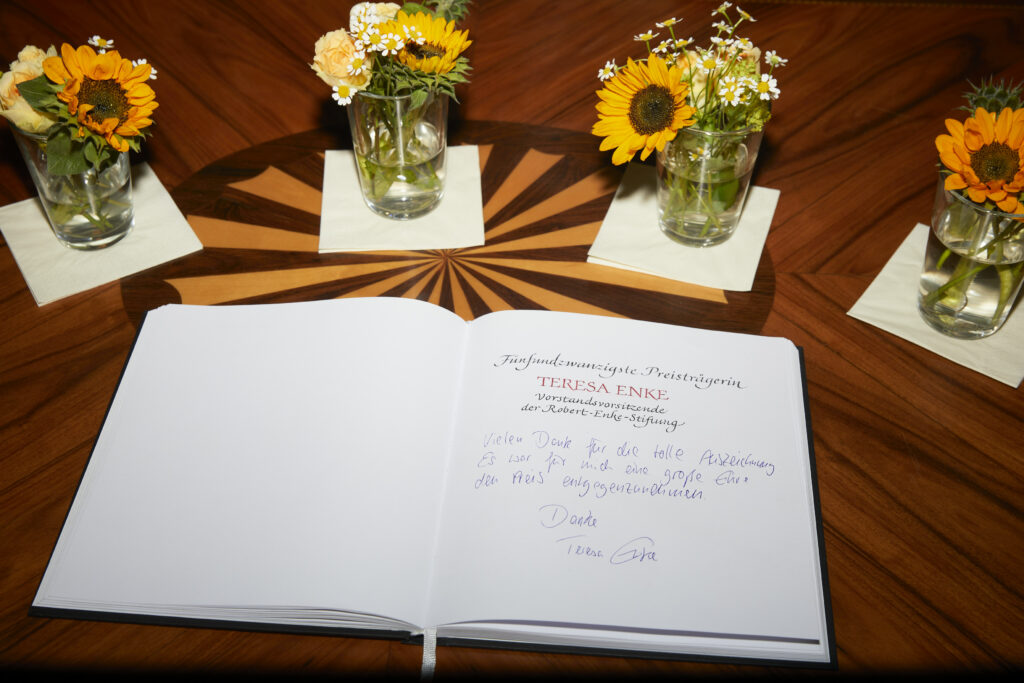 Fünfundzwanzigste Preisträgerin
TERESA ENKE
Vorstandsvorsitzende
der Robert-Enke-Stiftung
Vielen Dank für die tolle Auszeichnung
Es war für mich eine große Ehre
den Preis entgegenzunehmen.
Danke
Teresa Enke